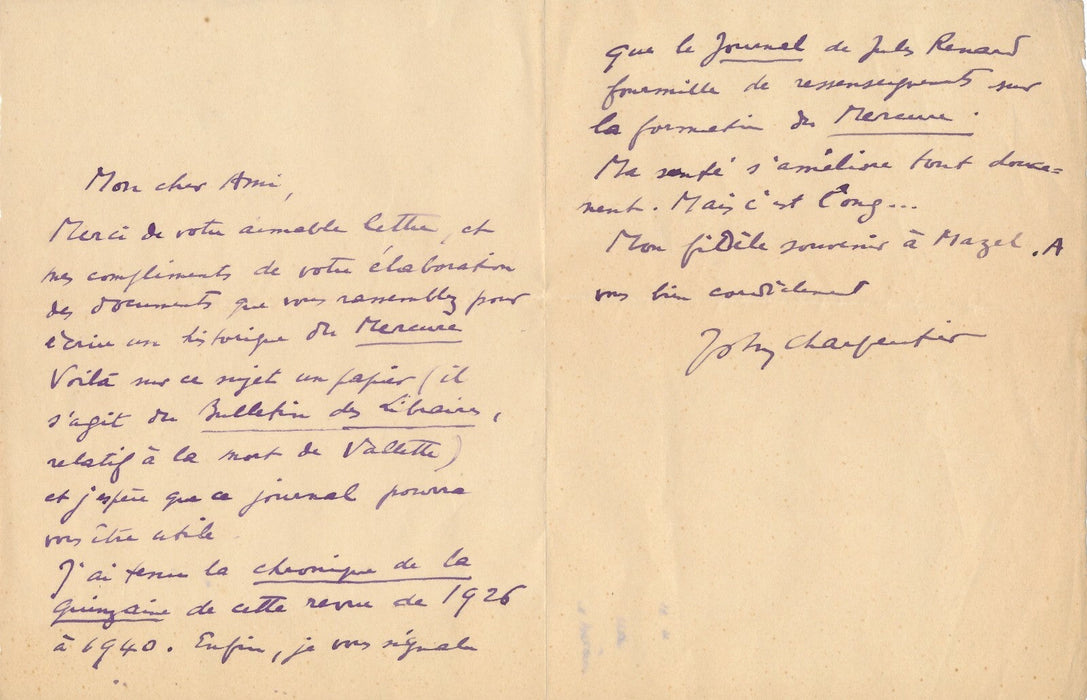 Mon cher Ami,
Merci de votre aimable lettre, et
mes compliments de votre élaboration
des documents que vous rassemblez pour
écrire un historique du Mercure
Voilà sur ce sujet un papier (il
s'agit du Bulletin des Libraires,
relatif à la mort de Vallette)
et j'espère que ce journal pourra
vous être utile
J'ai tenu la chronique de la
quinzaine de cette revue de 1926
à 1940. Enfin, je vous signale
que le Journal de Jules Renard
fourmille de renseignements sur
la formation du Mercure.
Ma santé s'améliore tout douce=
ment. Mais c'est long...
Mon fidèle souvenir à Mazel. A
vous bien cordialement
John Charpentier